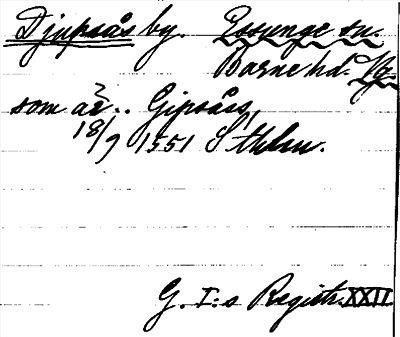 Djupsås by. Essunge sn.
Barne hd. Vg.
som är .. Gipsårs,
18/9 1551 Sthlm.
G. I:s Registr. XXII